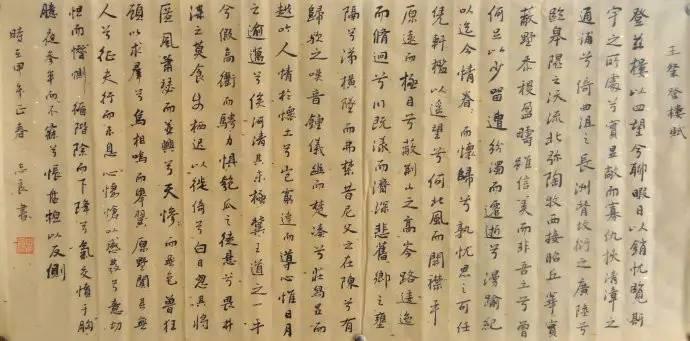 王粲登楼賦
登茲樓以四望兮聊暇日以銷忧覽斯
宇之所處兮實显敞而寡仇挾清漳之
通浦兮倚曲沮之長洲背坟衍之廣陸兮
臨皋隰之沃流北弥陶牧西接昭丘華實
蔽野黍稷盈疇雖信美而非吾土兮曾
何足以少留遭紛濁而遷逝兮漫踰紀
以迄今情眷眷而懷歸兮孰忧思之可任
凭軒檻以遥望兮向北風而開襟平
原遠而極目兮蔽荆山之高岑路逶迤
而脩迥兮川既漾而濟深悲舊鄉之壅
隔兮涕橫墜而弗禁昔尼父之在陳兮有
歸歟之嘆音鍾儀幽而楚奏兮莊舄显而
越吟人情於懷土兮豈窮達而異心惟日月
之逾邁兮俟河清其未極冀王道之一平
兮假高衢而騁力懼匏瓜之徒悬兮畏井
渫之莫食步栖遲以徙倚兮白日忽其將
匿風蕭瑟而並興兮天慘慘而無色獸狂
顧以求羣兮鳥相鳴而舉翼原野闃其無
人兮征夫行而未息心悽愴以感發兮意忉
怛而憯惻循階除而下降兮氣交憤于胸
臆夜參半而不寐兮悵盤桓以反側
時在甲午正春 志良書